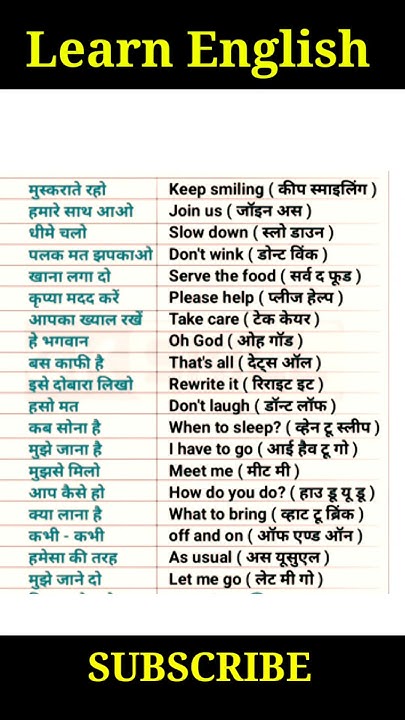 Learn English
मुस्कराते रहो Keep smiling ( कीप स्माइलिंग )
हमारे साथ आओ Join us ( जॉइन अस )
धीमे चलो Slow down ( स्लो डाउन )
पलक मत झपकाओ Don't wink ( डोन्ट विंक )
खाना लगा दो Serve the food ( सर्व द फूड )
कृप्या मदद करें Please help ( प्लीज हेल्प )
आपका ख्याल रखें Take care ( टेक केयर )
हे भगवान Oh God ( ओह गॉड )
बस काफी है That's all ( देट्स ऑल )
इसे दोबारा लिखो Rewrite it ( रिराइट इट )
हसो मत Don't laugh ( डॉन्ट लॉफ )
कब सोना है When to sleep? ( व्हेन टू स्लीप )
मुझे जाना है I have to go ( आई हैव टू गो )
मुझसे मिलो Meet me ( मीट मी )
आप कैसे हो How do you do? ( हाउ डू यू डू )
क्या लाना है What to bring ( व्हाट टू ब्रिंक )
कभी - कभी off and on ( ऑफ एण्ड ऑन )
हमेसा की तरह As usual ( अस यूसुएल )
मुझे जाने दो Let me go ( लेट मी गो )
SUBSCRIBE